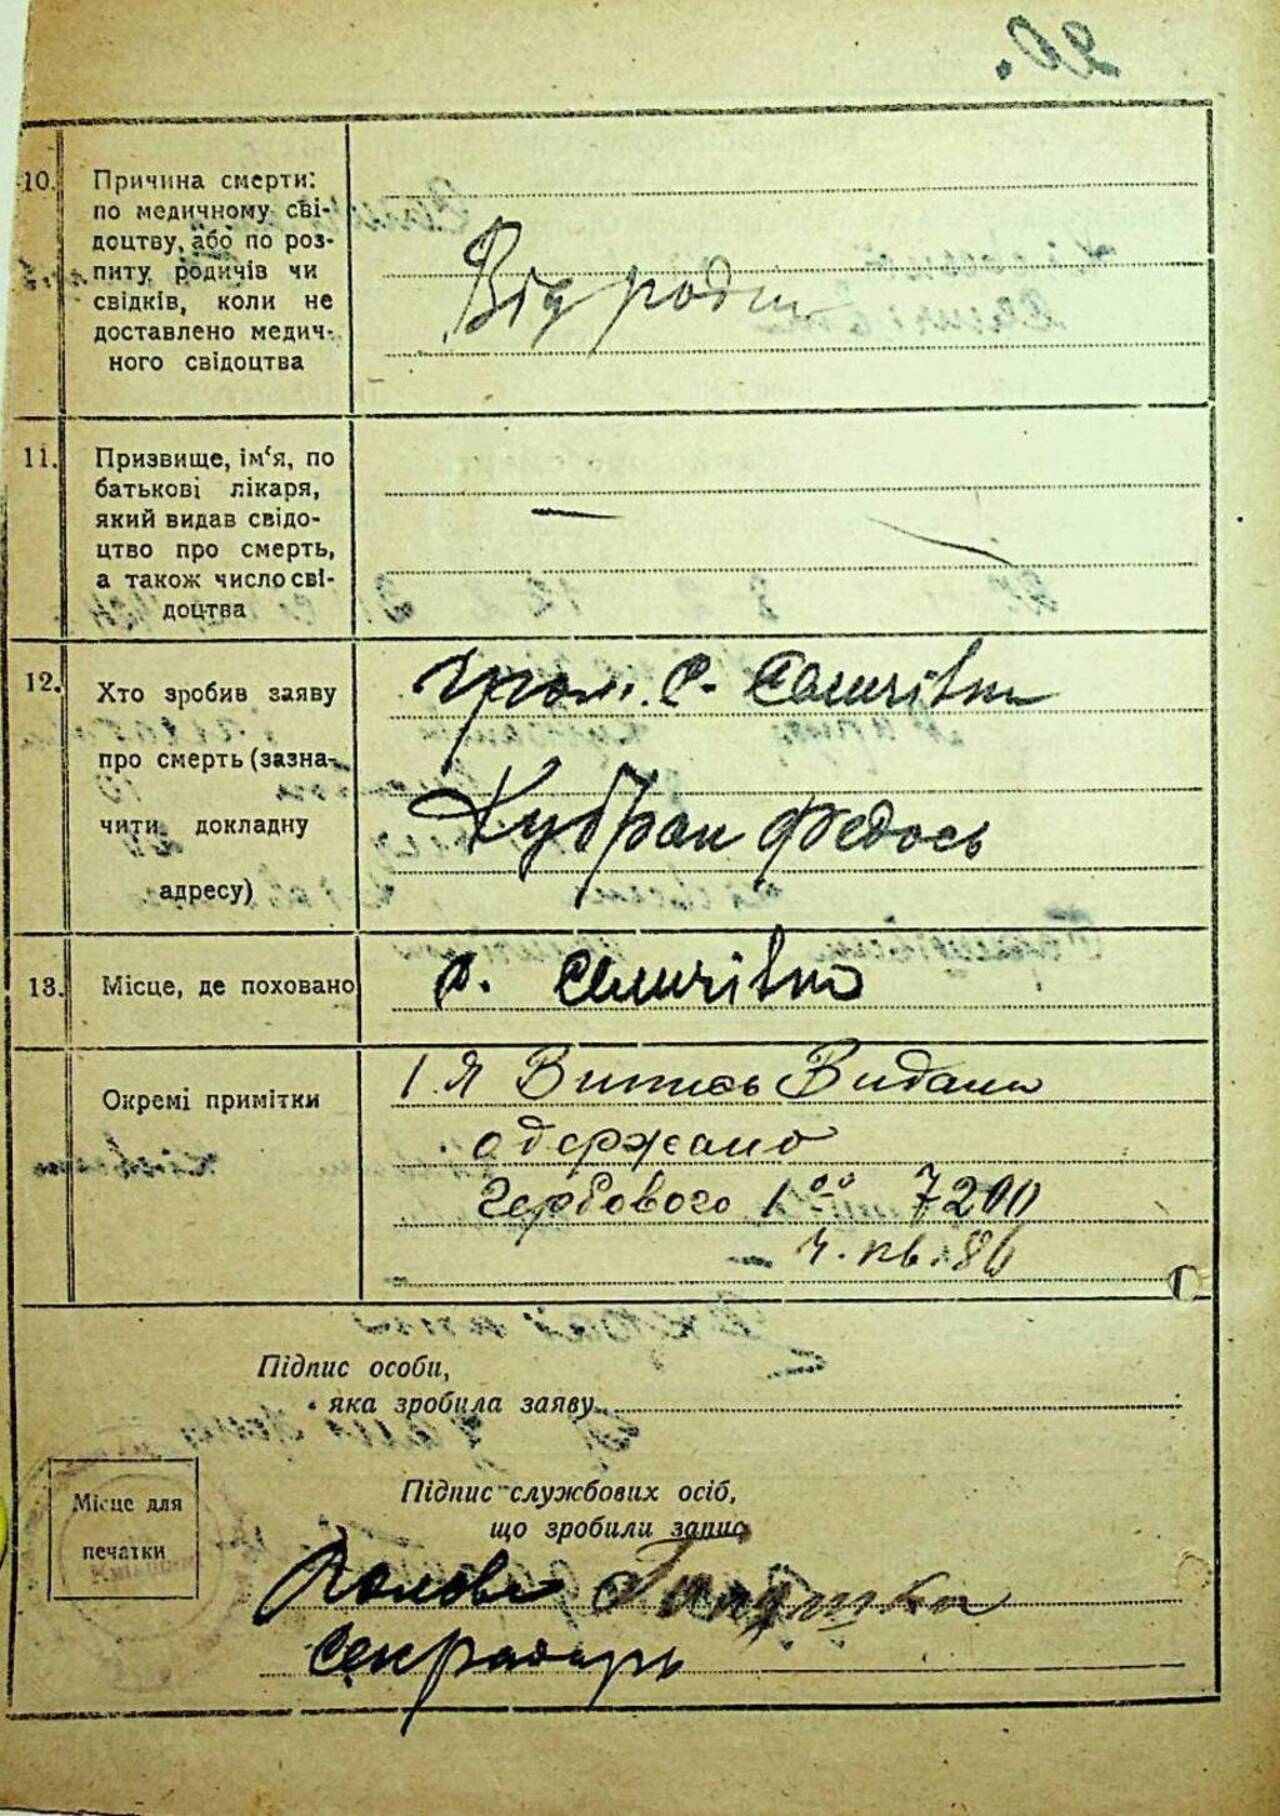 10.
Причина смерти:
по медичному сві-
доцтву, або по роз-
питу родичів чи
свідків, коли не
доставлено медич-
ного свідоцтва
Від родів
11.
Призвище, ім‘я, по
батькові лікаря,
який видав свідо-
цтво про смерть,
а також число сві-
доцтва
—
12.
Хто зробив заяву
про смерть (зазна-
чити докладну
адресу)
гром. с. Семичівки
Кубрак Федось
13.
Місце, де поховано
с. Семичівка
Окремі примітки
1.я Випись Видана
одержано
гербового 1 00 7200
ч. кв. 86
Підпис особи,
яка зробила заяву
Місце для
печатки
Підпис службових осіб,
що зробили запис
Голова
Секрадарь